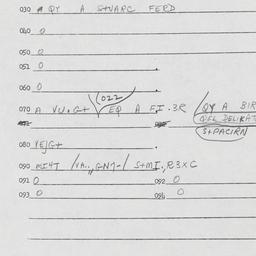 030 QY A STVARC FERD
040 0
050 0
051 0
060 0
022
070 A VU.G+ EQ A FI.3R / QY A BIR
QFL DELIKAT
S+PACIRN
080 VEJG+
090 MI4T /VA.,,GN7-/ S+MI.,R3XC
091 0 092 0
093 0 096 0